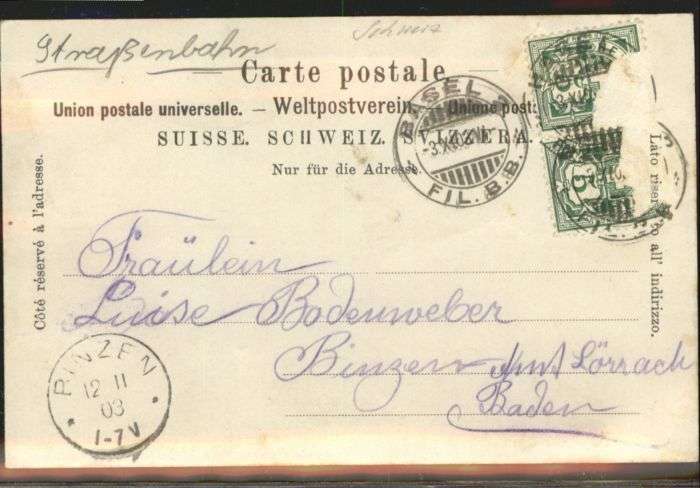 Straßenbahn
Schweiz
Carte postale
Union postale universelle. — Weltpostverein. — Unione post
SUISSE. SCHWEIZ. SVIZZERA.
Nur für die Adresse
Côté réservé à l'adresse.
Lato riser to all' indirizzo.
BASEL
-3.X
FIL.B.B.
5
5
Fräulein
Luise Bodenweber
Binzen Amt Lörrach
Baden
BINZEN
12 11
03
1-7V